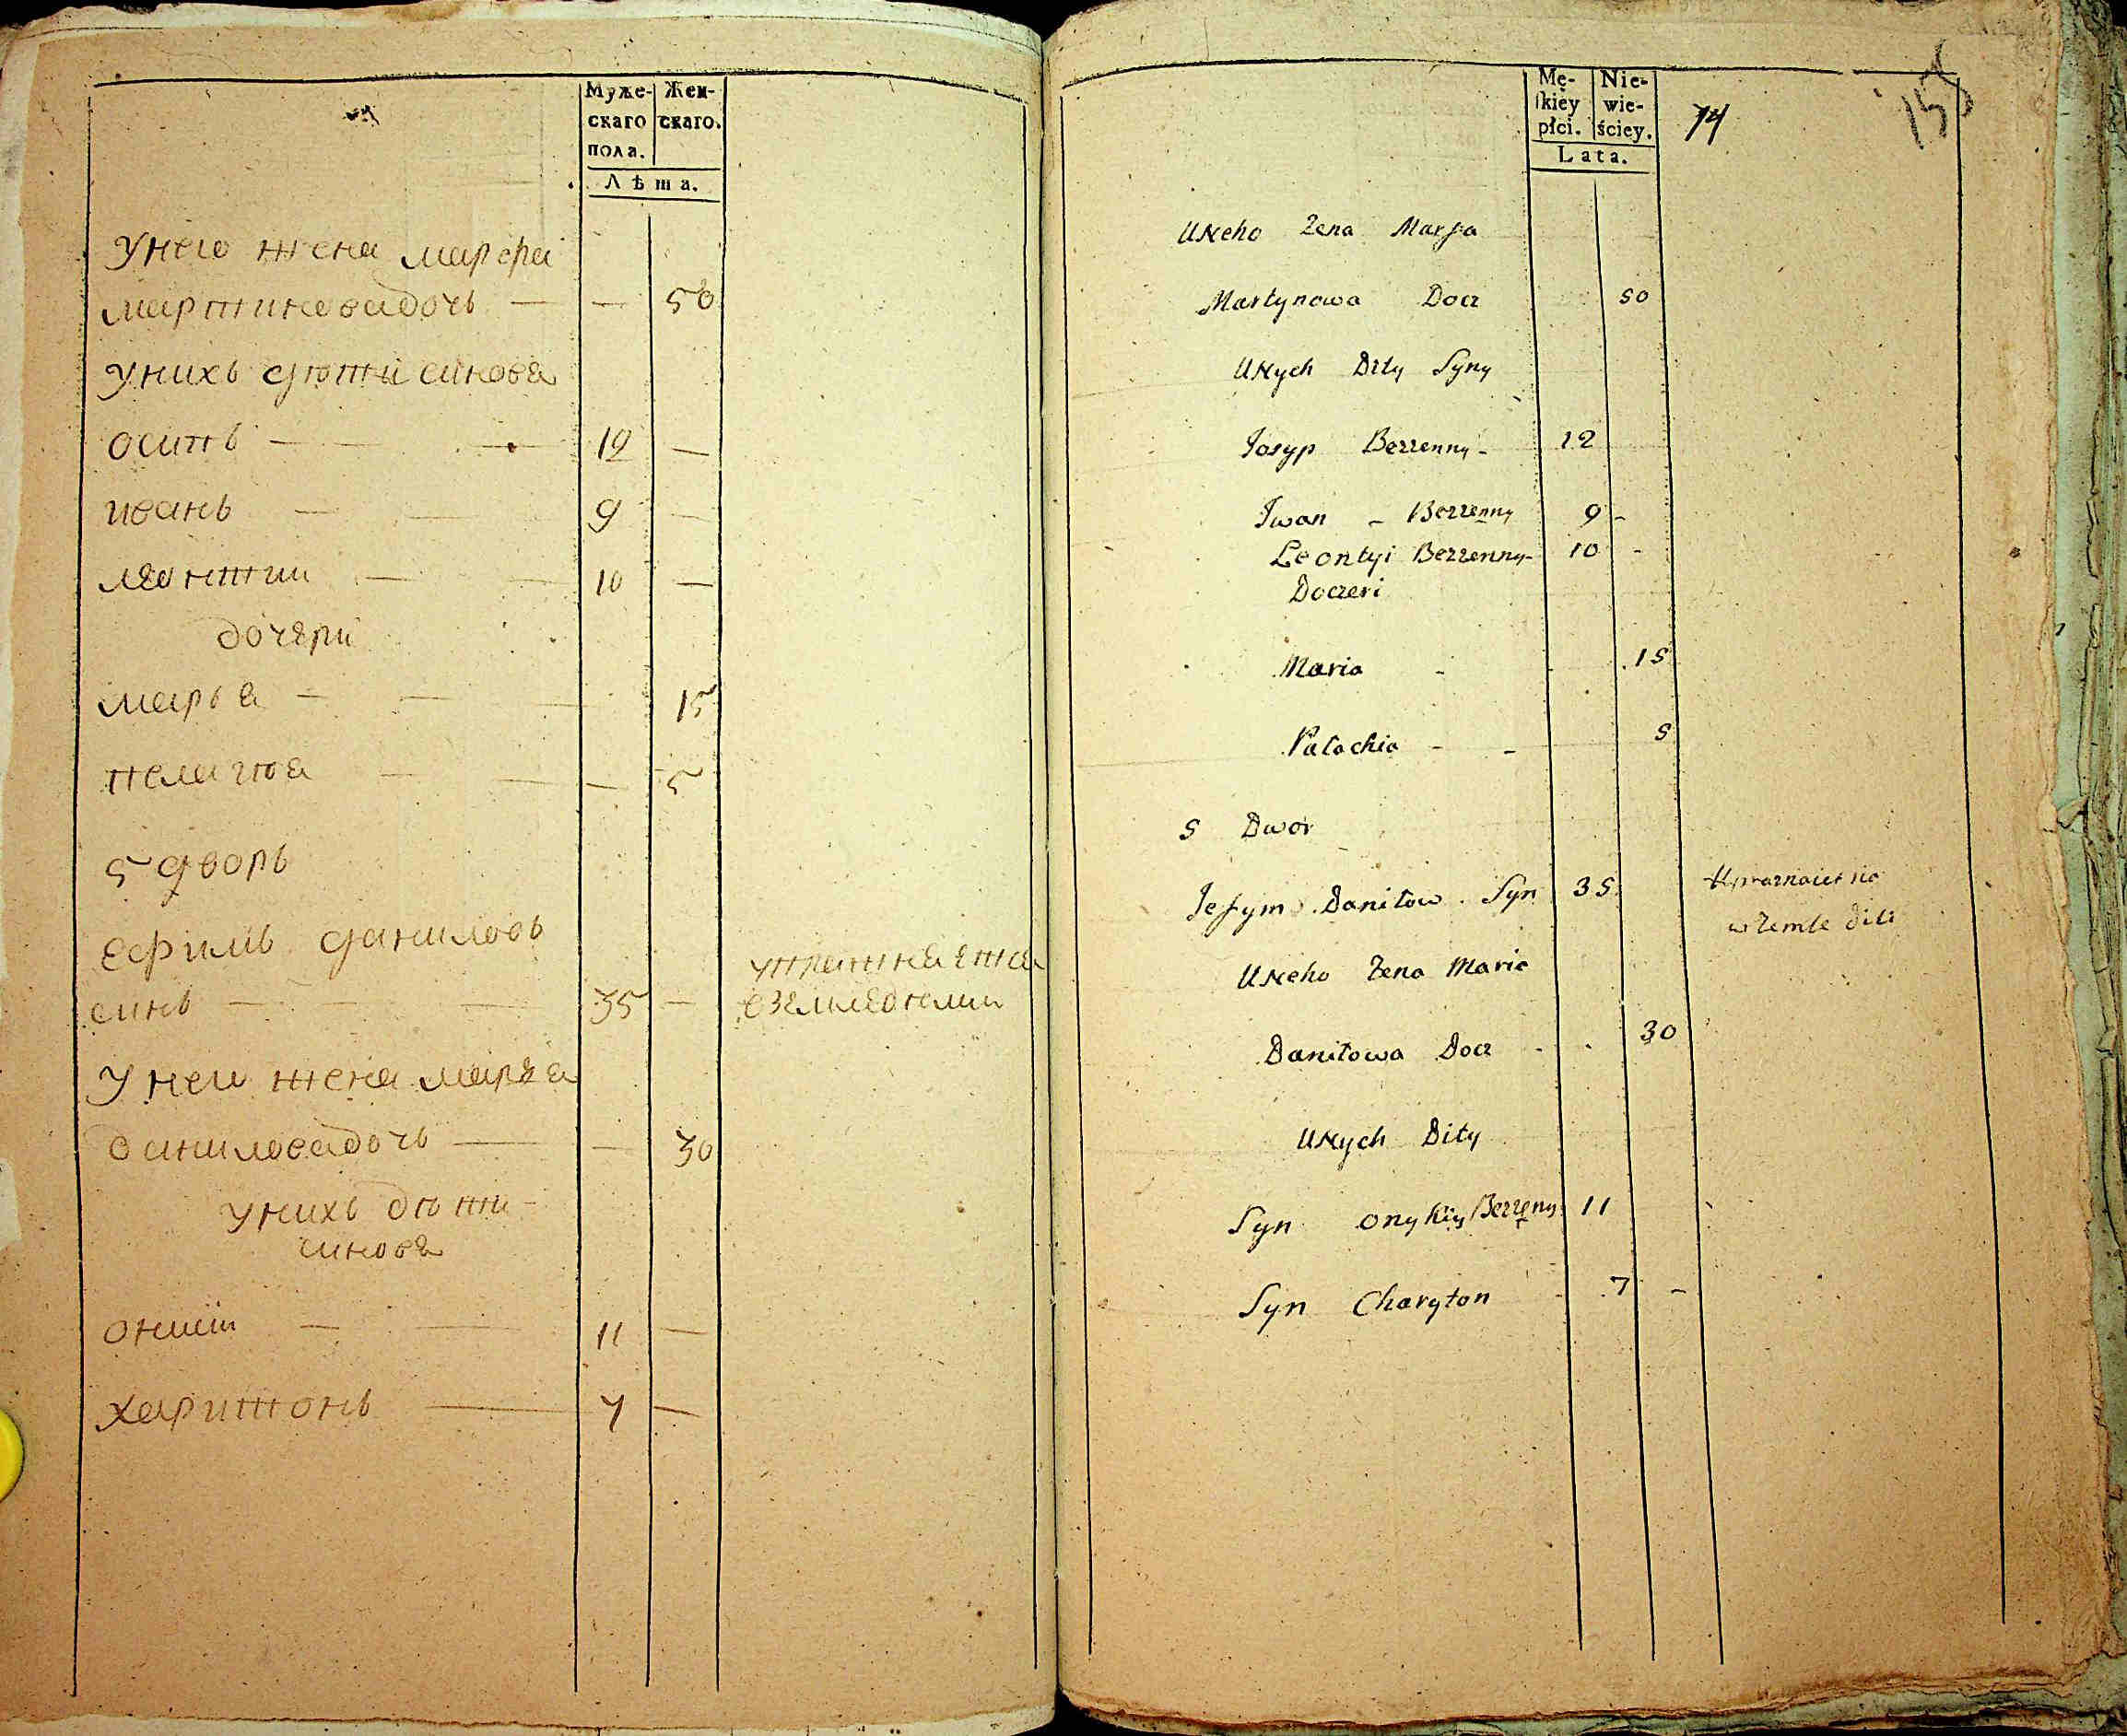 Муже- Жен-
скаго скаго.
пола.
Лѣта.
У него жена марфа
мартинова дочь — — 50
у нихъ дѣти синовя
осипъ — — — 12 —
иванъ — — 9 —
леонтии — — 10 —
дочери
марья — — — 15
пелагѣя — — — 5
5 дворъ
ефимъ даниловъ
синъ — — — 35 —
упражняется
в земледелии
У него жена марья
данилова дочь — — 30
у нихъ дѣти —
синовя
оникіи — — 11 —
харитонъ — 7 —
Mę- Nie-
skiey wie-
płci. ściey.
Lata.
74
155
U Neho Zena Marfa
Martynowa Docz 50
U Nych Dity Syny
Josyp Bezzenny - 12
Iwan - Bezzenny 9 -
Leontyi Bezzenny - 10 -
Doczeri
Maria - 15
Palachia - - 5
5 Dwor
Jefym Daniłow Syn 35
w zemle dili
U Neho Zena Maria
Daniłowa Docz - - 30
U Nych Dity
Syn Onykiy Bezzeny 11
Syn Charyton 7 -